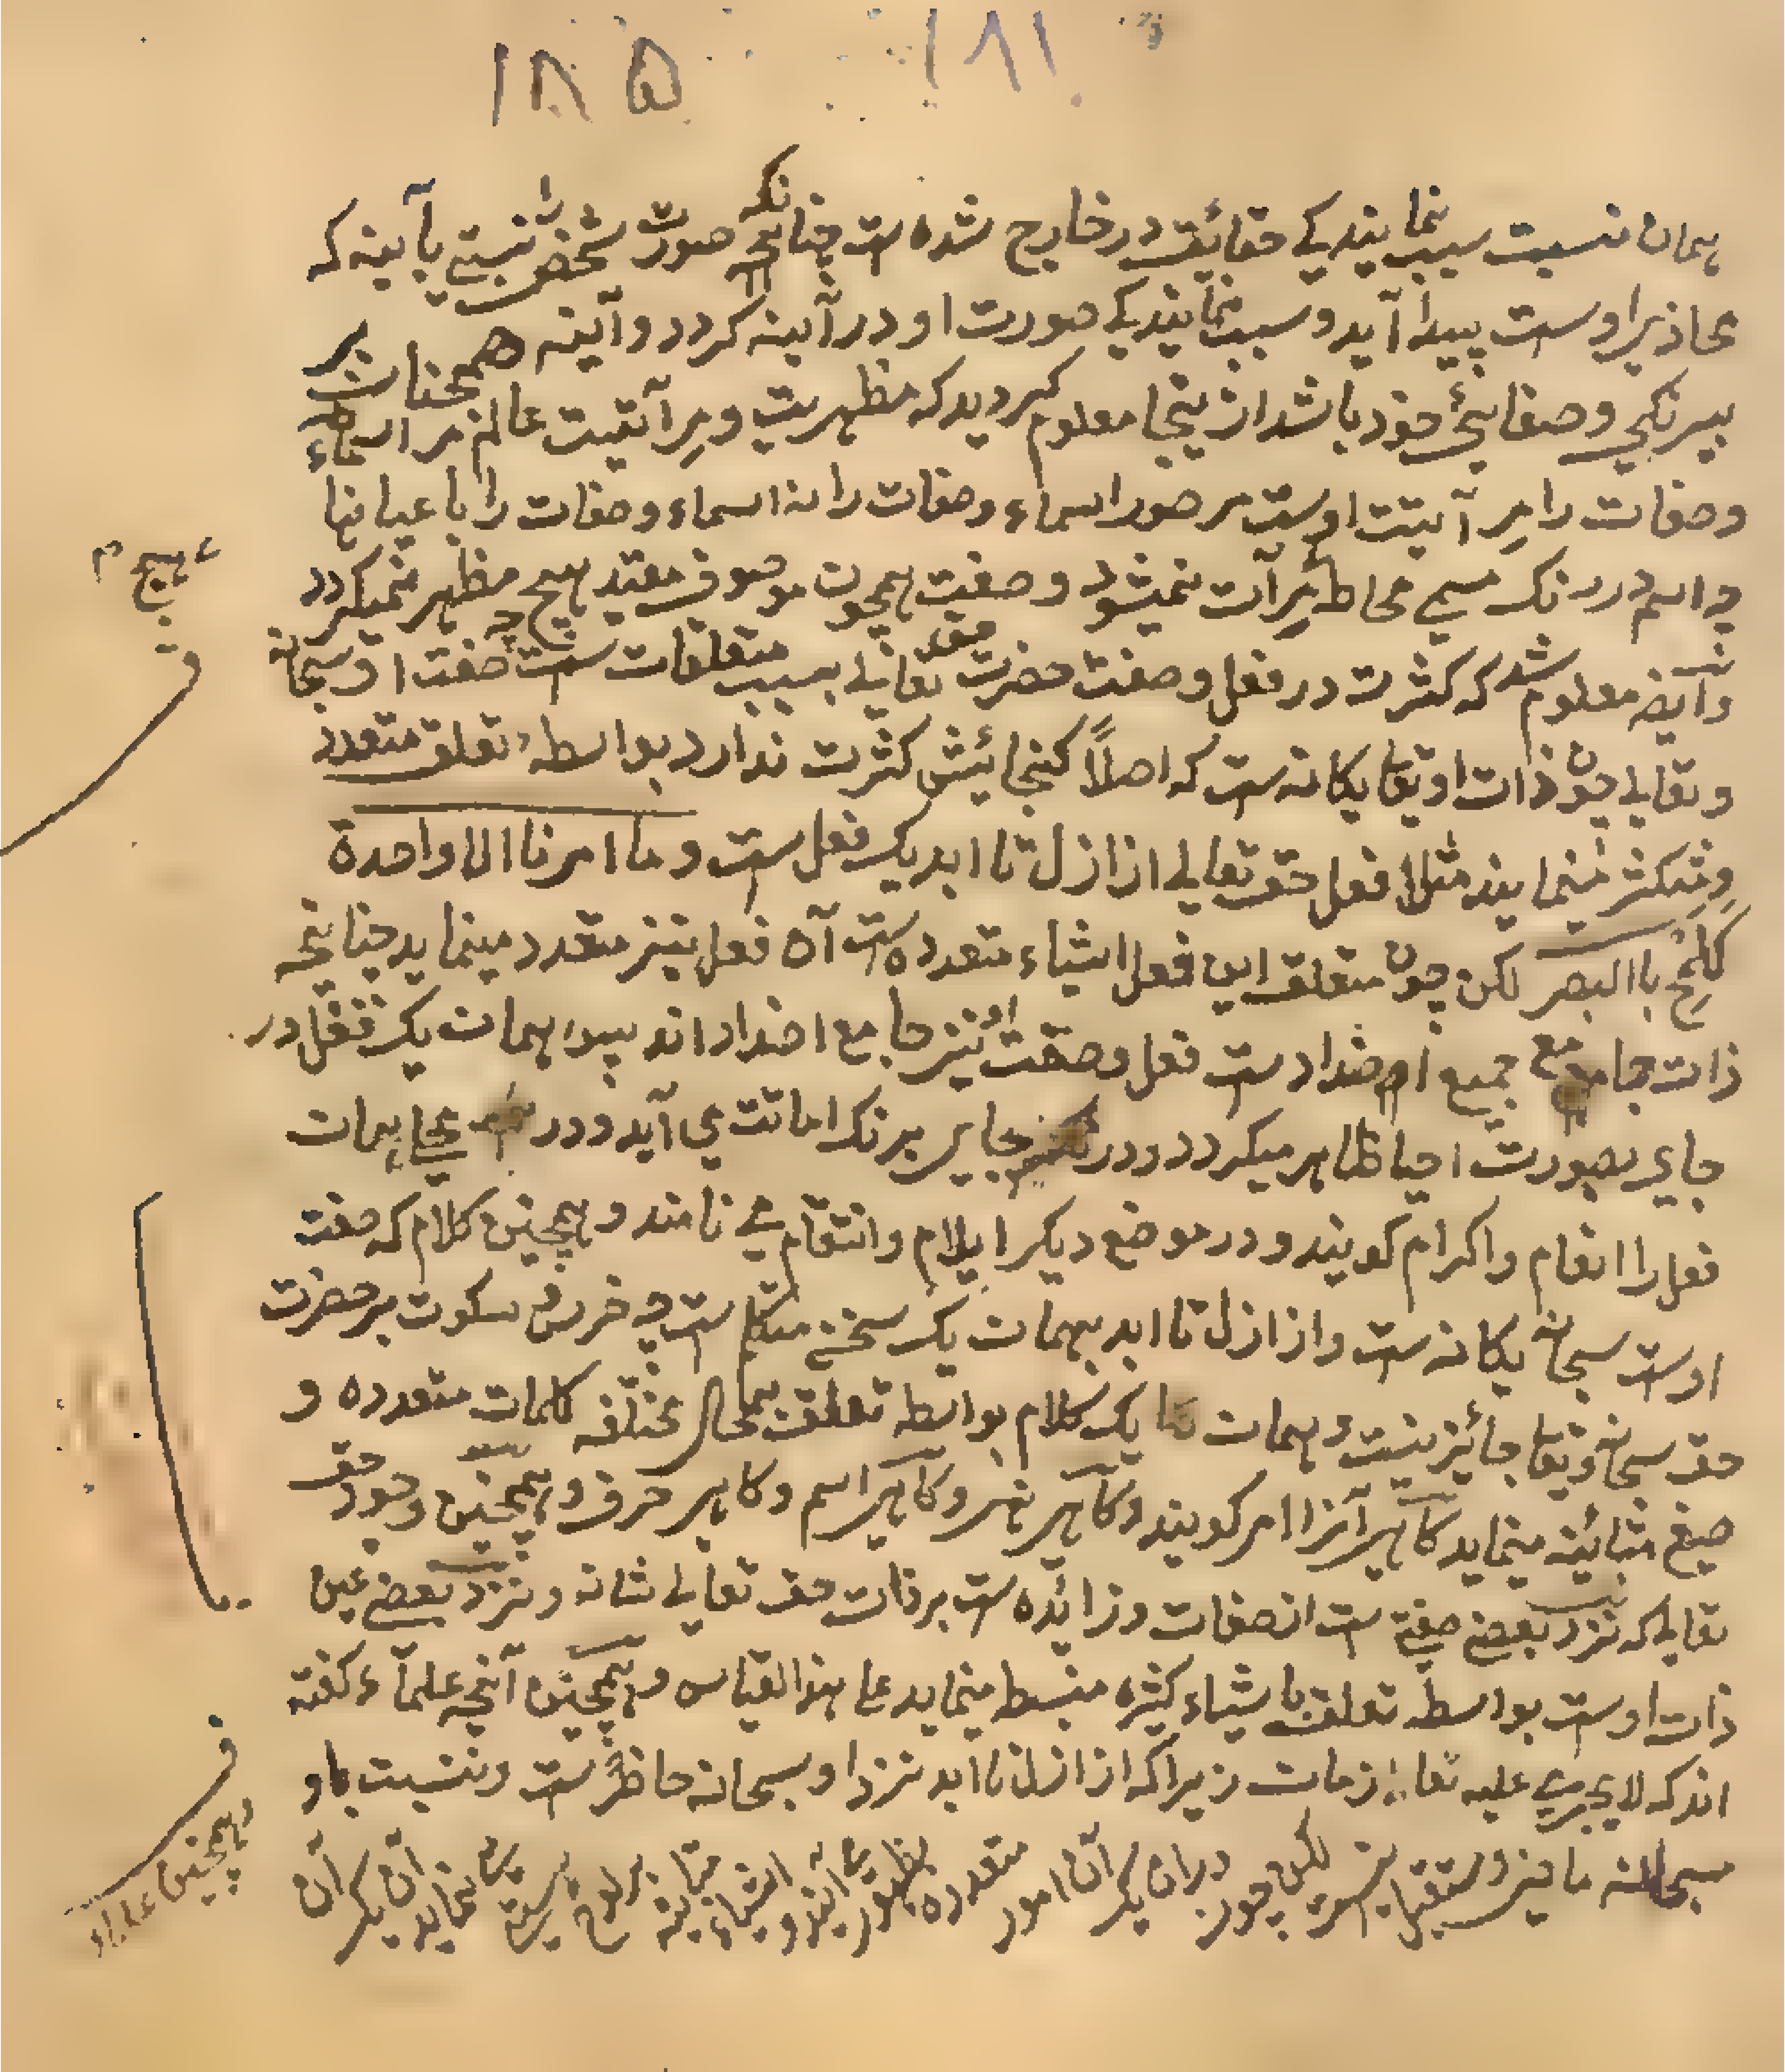 ۱۸۵ ۱۸۱
همان نسبت سبب نمایندیکے حقائق در خارج شده ست چنانکه صورت شخص را نسبتے بآینه که
محاذیر اوست پیدا آید و سبب نمایندیکے صورت او در آینه کردد و آینه همچنان بر
بیرنکی و صفایئ خود باشد ازینجا معلوم کردید که مظهریت و مرآتیت عالم مر اسماء
وصفات را مرآتیت اوست مر صور اسماء وصفات را نه اسماء وصفات را باعیانها
چه اسم در رنک مسمی محاط مرآت نمیشود وصفت همچون موصوف مقید هیچ مظهر نمیکردد
وایضه معلوم شد که کثرت در فعل وصفت حضرت حق تعالے بسبب متعلقات ست چه صفت او سبحانه
وتعالے چون ذات او تعا یکانه ست که اصلاً کنجائیش کثرت ندارد بواسطهٔ تعلق متعدد
ومتکثر مینمایند مثلا فعل حق تعالے از ازل تا ابد یک فعل ست وما امرنا الا واحدة
کلمح باالبصر لکن چون متعلق این فعل اشیاء متعدده ست آن فعل نیز متعدد مینماید چنانچه
ذات جامع جمیع اضداد ست فعل وصفت او نیز جامع اضداد اند پس همان یک فعل در
جای بصورت احیا ظاهر میکردد ودر جایے برنک اماتت می آید ودر محلے همان
فعل را انعام واکرام کویند ودر موضع دیکر ایلام وانتقام مے نامند وهمچنین کلام که صفت
اوست سبحانه یکانه ست واز ازل تا ابد بهمان یک سخن متکلم ست چه خرس وسکوت بر حضرت
حق سبحانه وتعا جائیز نیست وهمان یک کلام بواسطه تعلق بمحال مختلفه کلمات متعدده و
صیغ متبائینه مینماید کاهے آنرا امر کویند وکاهے نهی وکاهے اسم وکاهے حرف وهمچنین وجود حق
تعالے که نزد بعضے صفتے ست از صفات وزائده ست بر ذات حق تعالے شانه ونزد بعضے عین
ذات اوست بواسطه تعلق باشیاء کثیره منبسط مینماید علی هذا القیاس وهمچنین آنچه علماء کفته
اند که لا یجری علیه تعالے زمان زیرا که از ازل تا ابد نزد او سبحانه حاضر ست ونسبت باو
سبحانه ماضی ومستقبل نیست لکن چون دران یک آن امور متعدده بظهور مے آیند و اشیاء متباینه بر لوح هستے مے نماید آن یک آن
هیچ
وهمچنین علماء